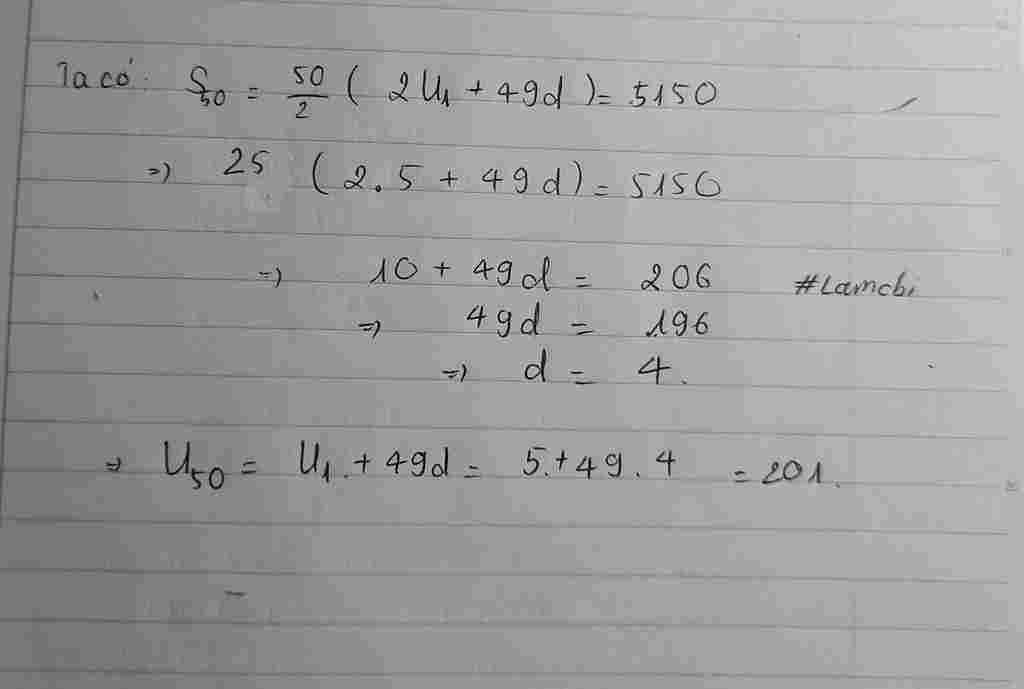 Ta có: S₅₀ = 50/2 ( 2U₁ + 49d ) = 5150
=> 25 ( 2.5 + 49d ) = 5150
=> 10 + 49d = 206 #Lamchi
=> 49d = 196
=> d = 4.
=> U₅₀ = U₁ + 49d = 5 + 49 . 4 = 201.